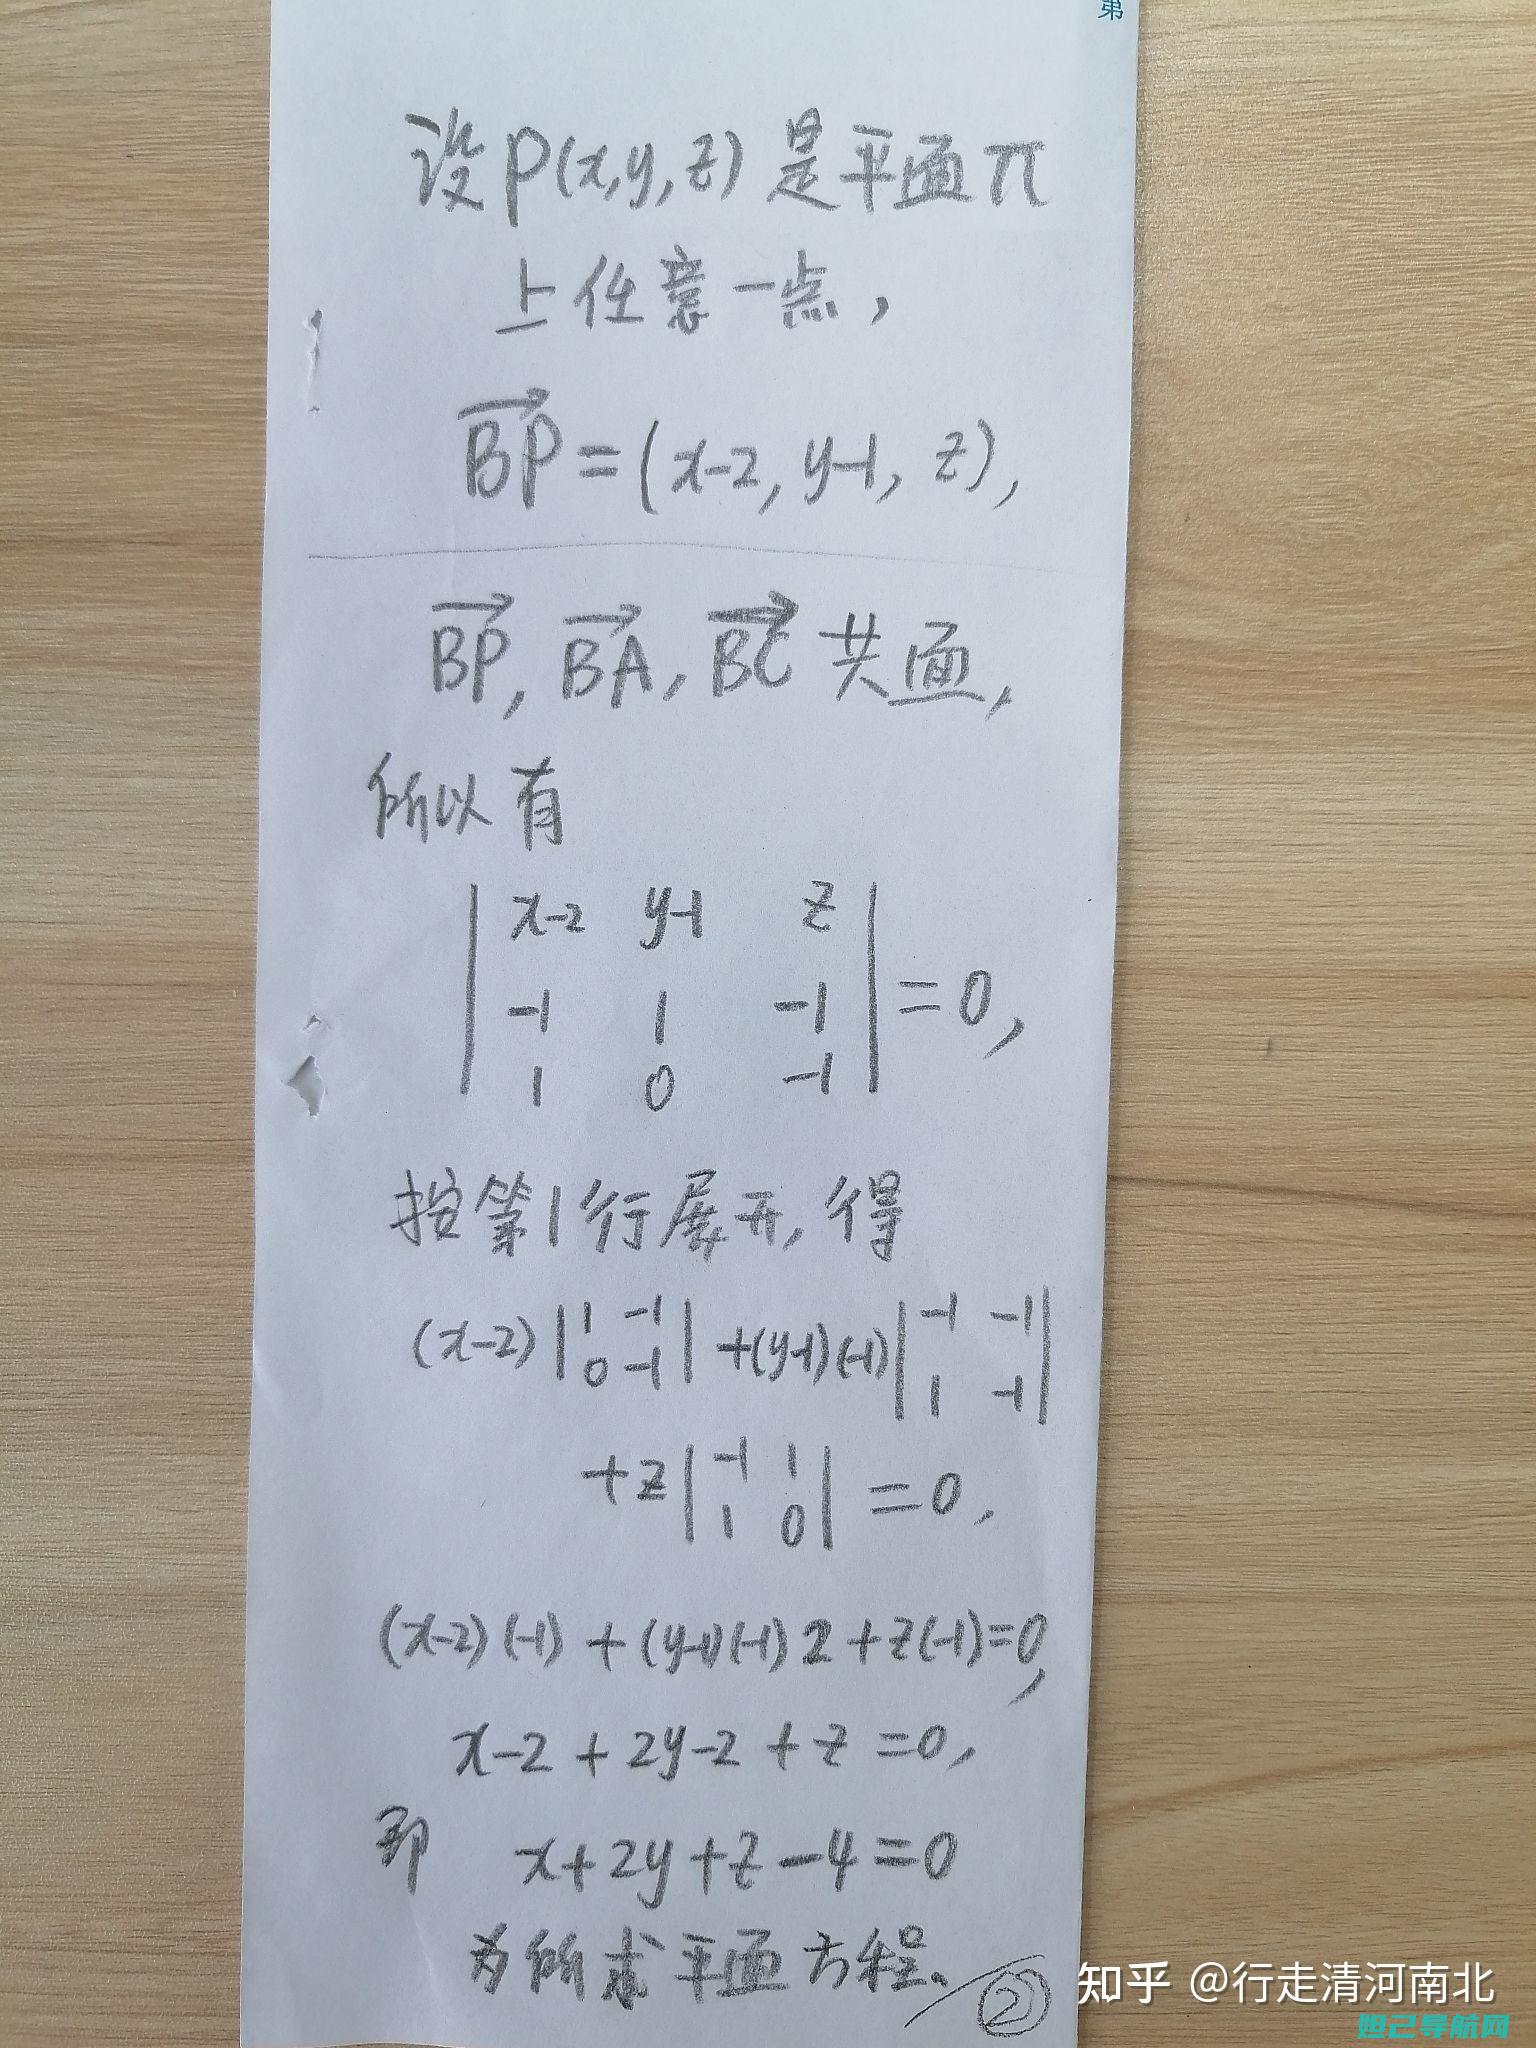 第
设P(x,y,z)是平面π
上任意一点,
BP=(x-2,y-1,z),
BP,BA,BC共面,
所以有
|x-2 y-1 z|
|-1 1 -1|=0,
|1 0 -1|
按第1行展开,得
(x-2)|1 -1|+(y-1)(-1)|-1 -1|
|0 -1| |1 -1|
+z|-1 1|=0,
|1 0|
(x-2)(-1)+(y-1)(-1)2+z(-1)=0,
x-2+2y-2+z=0,
即 x+2y+z-4=0
为所求平面方程。
②
知乎 @行走清河南北
妲己导航网